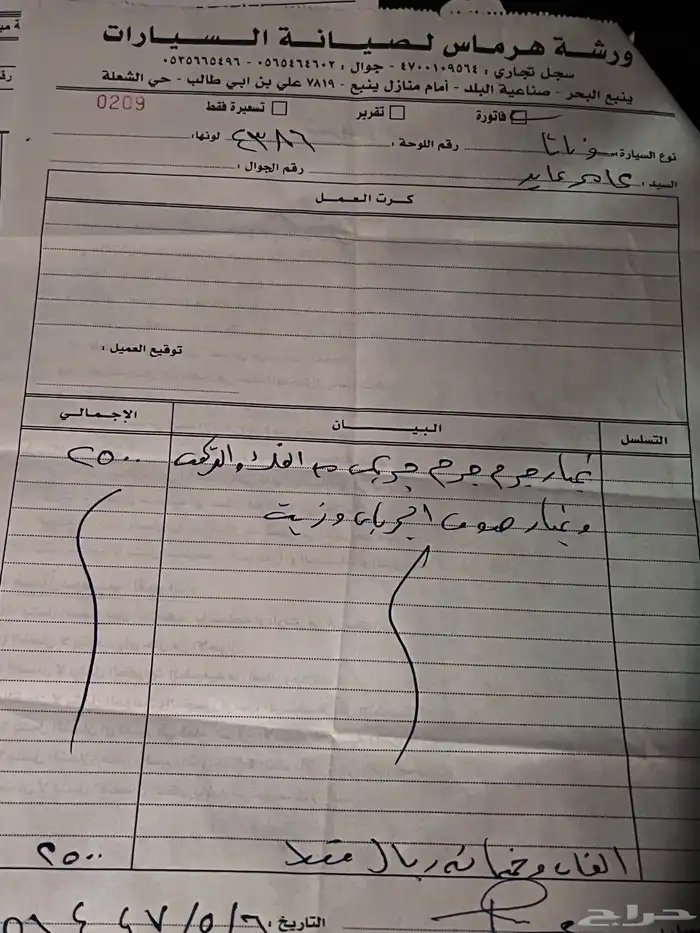 ورشة هرماس لصيانة السيارات
سجل تجاري : ٤٧٠٠١٠٩٥٦٤ - جوال : ٠٥٦٥٤٦٤٦٠٢ - ٠٥٣٥٦٦٥٤٩٦
ينبع البحر - صناعية البلد - أمام منازل ينبع - ٧٨١٩ علي بن ابي طالب - حي الشعلة
فاتورة تقرير تسعيرة فقط 0209
نوع السيارة : سوناتا رقم اللوحة : ٤٣٨٦ لونها :
السيد : عامر عايد رقم الجوال :
كرت العمل
توقيع العميل :
التسلسل البيان الإجمالي
غيار جرم جرم جربكس مع الفك والتركيب ٢٥٠٠
وغيار صوف الجربكس وزيته
الفان وخمسمائة ريال فقط ٢٥٠٠
التاريخ :
حراج